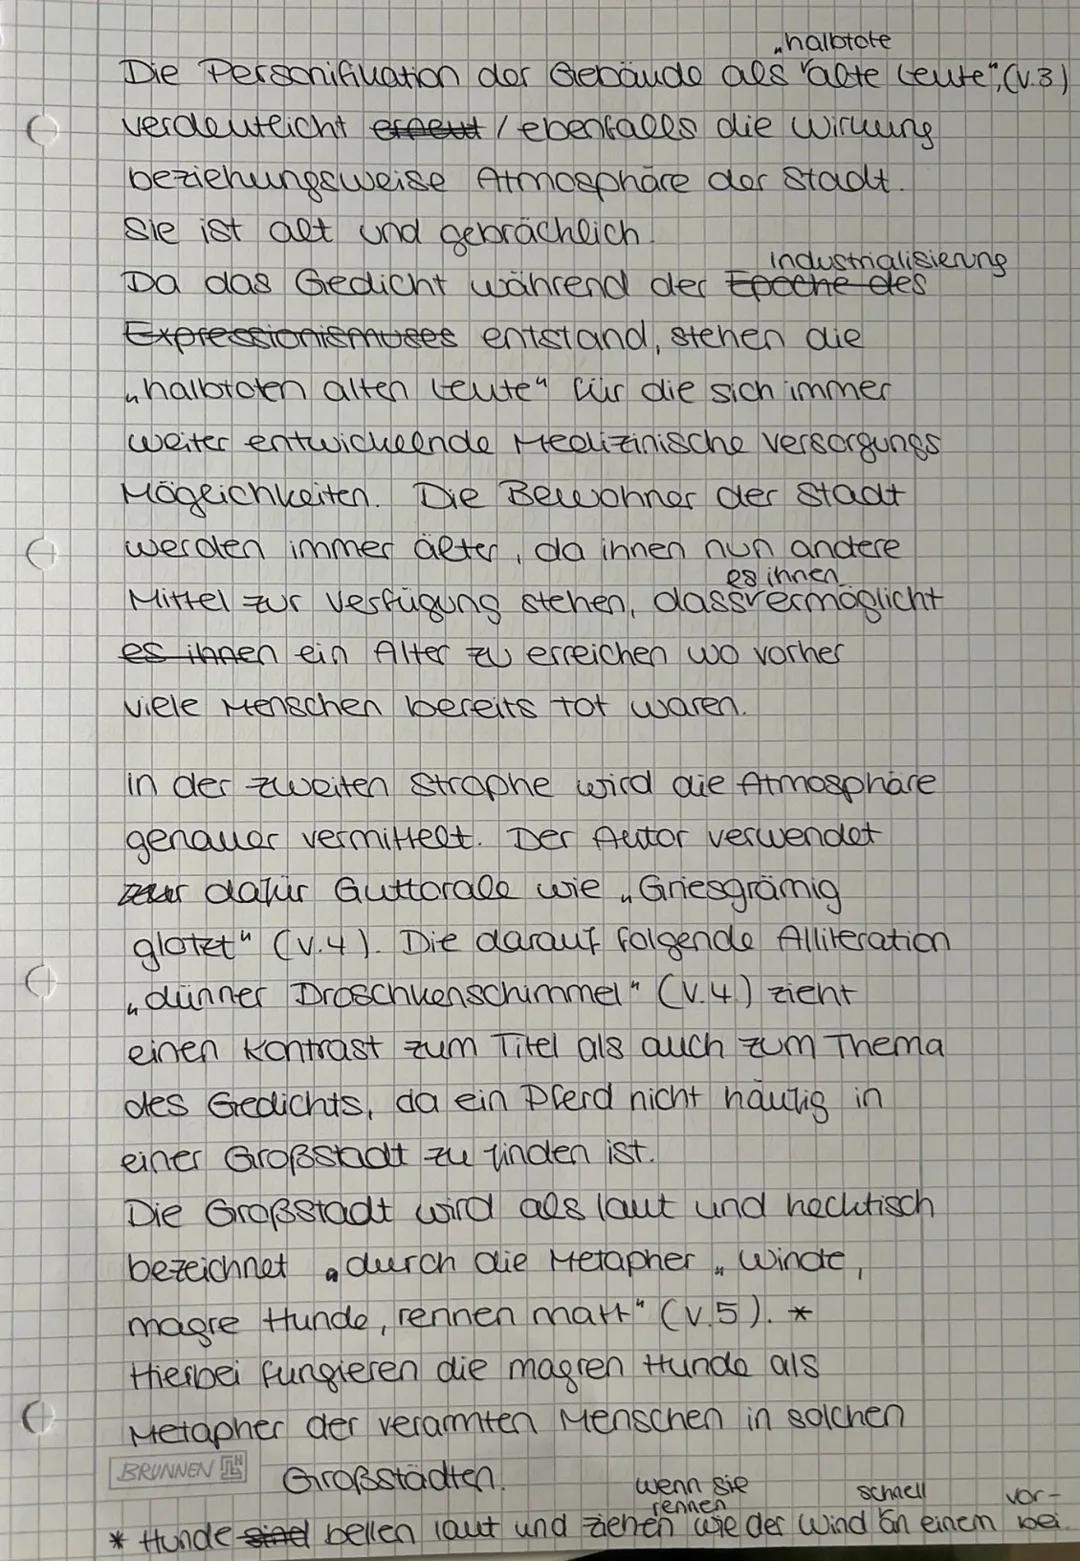 „halbtote
Die Personifikation der Gebäude als "alte Leute", (V.3)
verdeutlicht erneut / ebenfalls die Wirkung
beziehungsweise Atmosphäre der Stadt.
Sie ist alt und gebrächlich.
Industrialisierung
Da das Gedicht während der Epoche des
Expressionismuses entstand, stehen die
„halbtoten alten Leute" für die sich immer
weiter entwickelnde Medizinische versorgungs
Möglichkeiten. Die Bewohner der Stadt
werden immer älter, da ihnen nun andere
es ihnen
Mittel zur Verfügung stehen, dass vermöglicht
es ihnen ein Alter zu erreichen wo vorher
viele Menschen bereits tot waren.
In der zweiten Strophe wird die Atmosphäre
genauer vermittelt. Der Autor verwendet
zur dafür Guttorale wie „Griesgrämig
glotzt" (V.4). Die darauf folgende Alliteration
„dünner Droschkenschimmel" (V.4.) zieht
einen Kontrast zum Titel als auch zum Thema
des Gedichts, da ein Pferd nicht häufig in
einer Großstadt zu finden ist.
Die Großstadt wird als laut und hecktisch
bezeichnet durch die Metapher „Winde,
magre Hunde, rennen matt" (V.5). *
Hierbei fungieren die magren Hunde als
Metapher der verarmten Menschen in solchen
BRUNNEN
Großstädten.
wenn sie schnell vor-
rennen
* Hunde sind bellen laut und ziehen wie der Wind an einem bei.